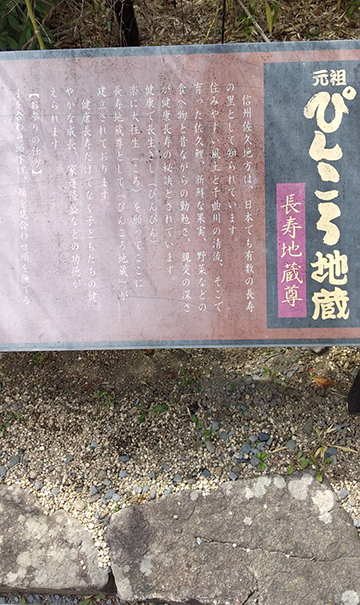 元祖
ぴんころ地蔵
長寿地蔵尊
信州佐久地方は、日本でも有数の長寿
の里として知られています。
住みやすい風土と千曲川の清流、そこで
育った佐久鯉、新鮮な果実、野菜などの
食べ物と昔ながらの勤勉さ、親交の深さ
が健康長寿の秘訣とされています
健康で長生きし（ぴんぴん）
楽に大往生（ころ）を願ってここに
長寿地蔵尊として「ぴんころ地蔵」が
建立されております。
健康長寿だけでなく子どもたちの健
やかな成長、家運隆盛などの功徳が
られます。
【お参りの仕方】
手を合わせ